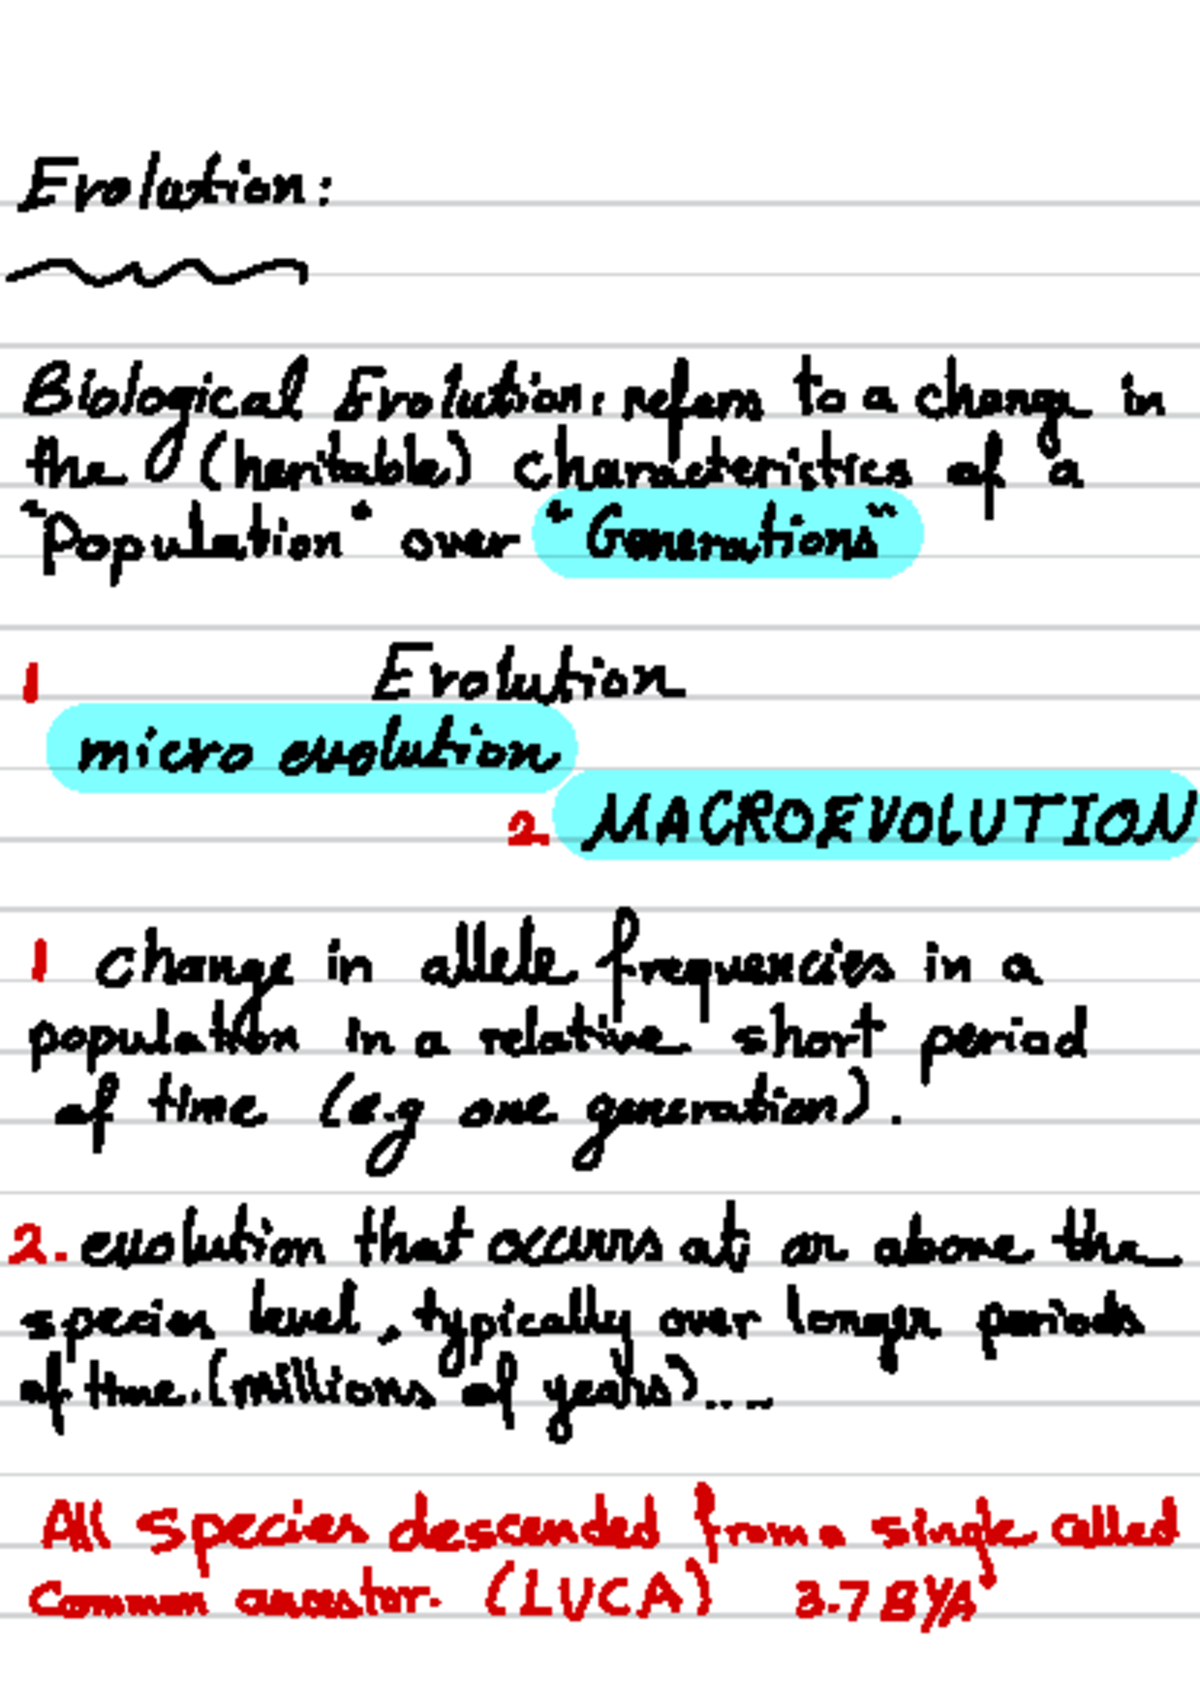 Evolution:
Biological Evolution: refers to a change in
the (heritable) characteristics of a
"Population" over "Generations"
1 Evolution
micro evolution
2 MACROEVOLUTION
1 change in allele frequencies in a
population in a relative short period
of time (e.g one generation).
2. evolution that occurs at or above the
species level, typically over longer periods
of time. (millions of years)....
All species descended from a single celled
Common ancestor. (LUCA) 3.7 BYA